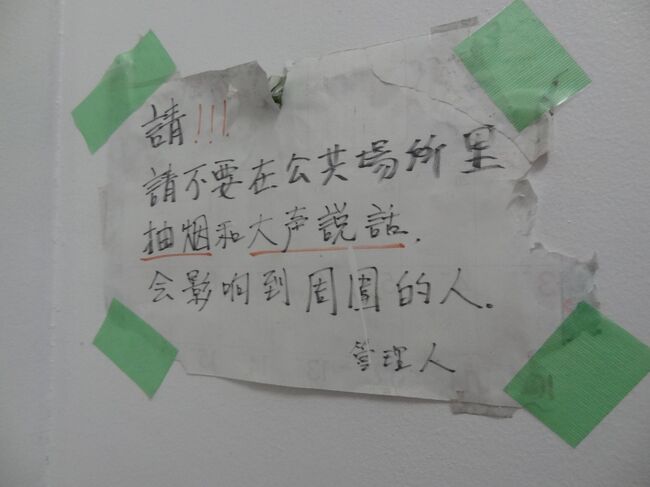 請!!!
請不要在公共場所里
抽烟和大声説話,
会影响到周圍的人。
管理人